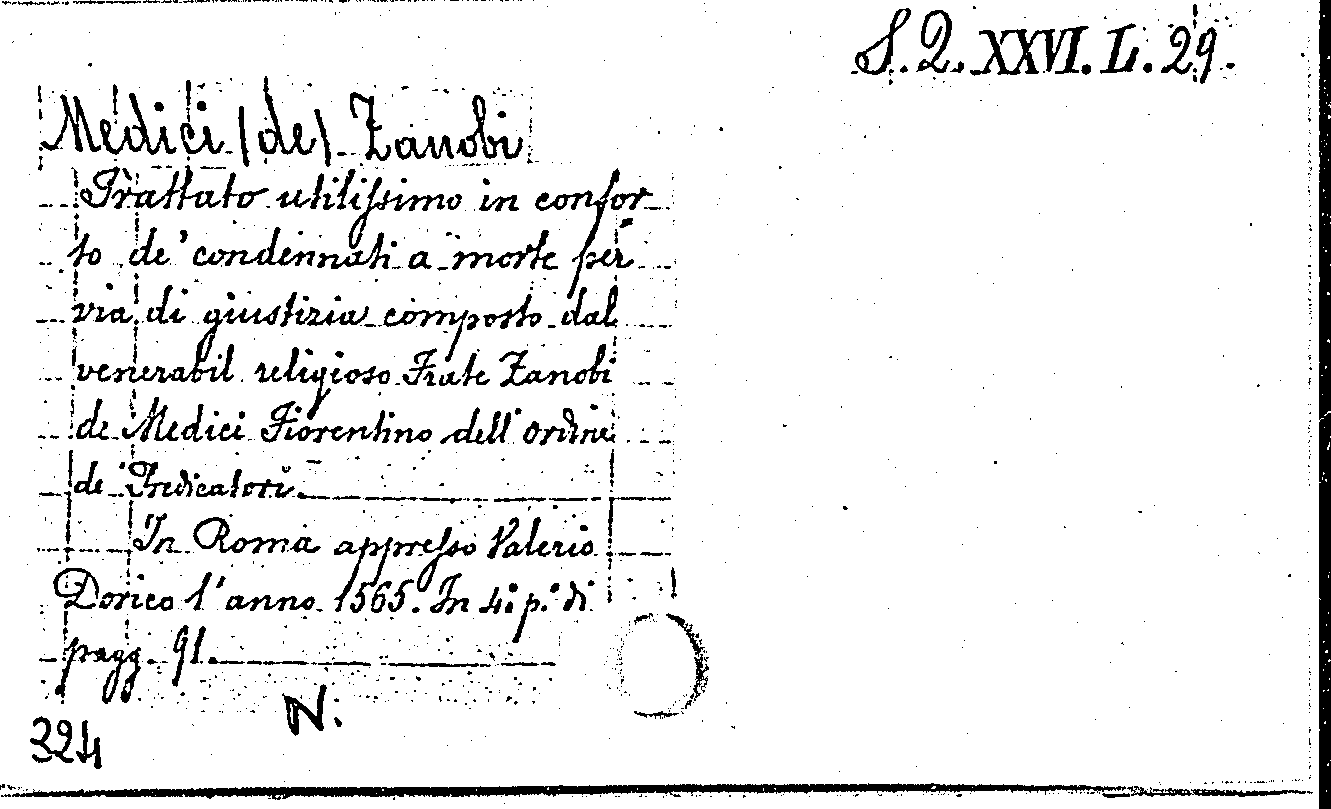 S. Q. XXVI. L. 29.
Medici (de) Zanobi
Trattato utilissimo in confor
to de' condennati a morte per
via di giustizia composto dal
venerabil religioso Frate Zanobi
de Medici Fiorentino dell'ordine
de' Predicatori.
In Roma appresso Valerio
Dorico l'anno 1565. In 4.° p.° di
pagg. 91.
N.
324